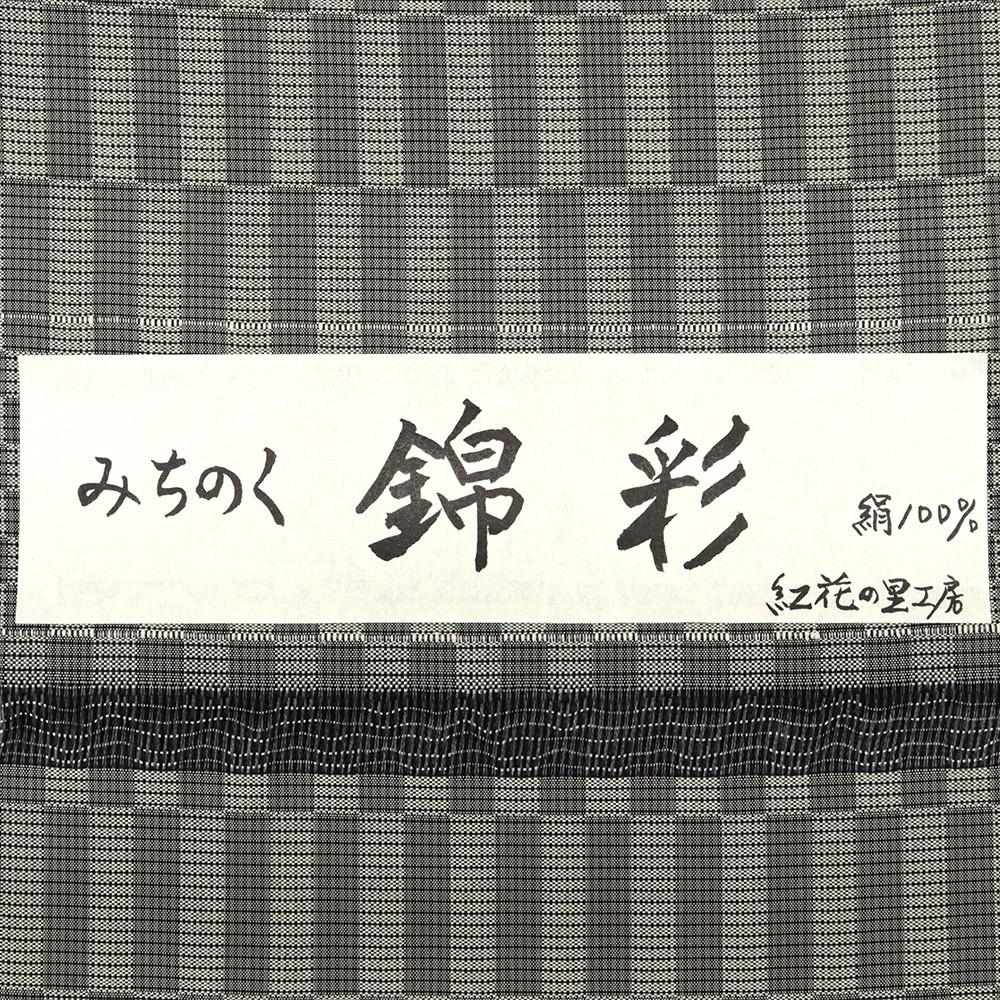 みちのく 錦彩 絹100%
紅花の里工房